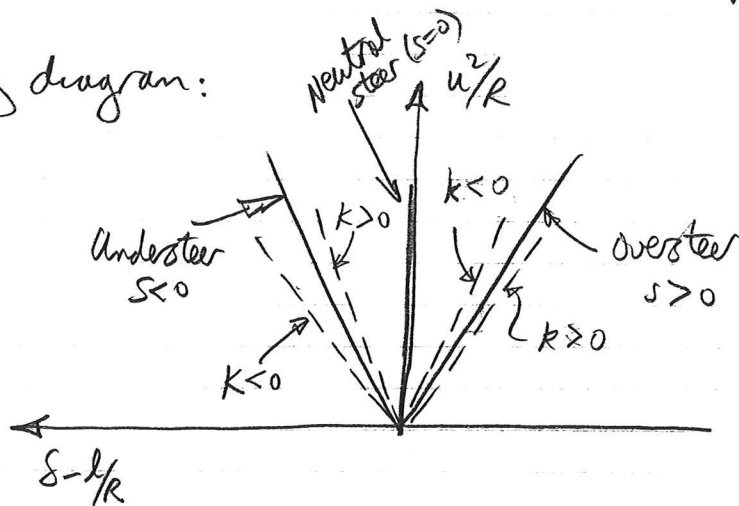 diagram:
Neutral
steer (s=0)
u²/R
K>0
k<0
Understeer
S<0
Oversteer
s>0
K<0
k>0
δ-l/R